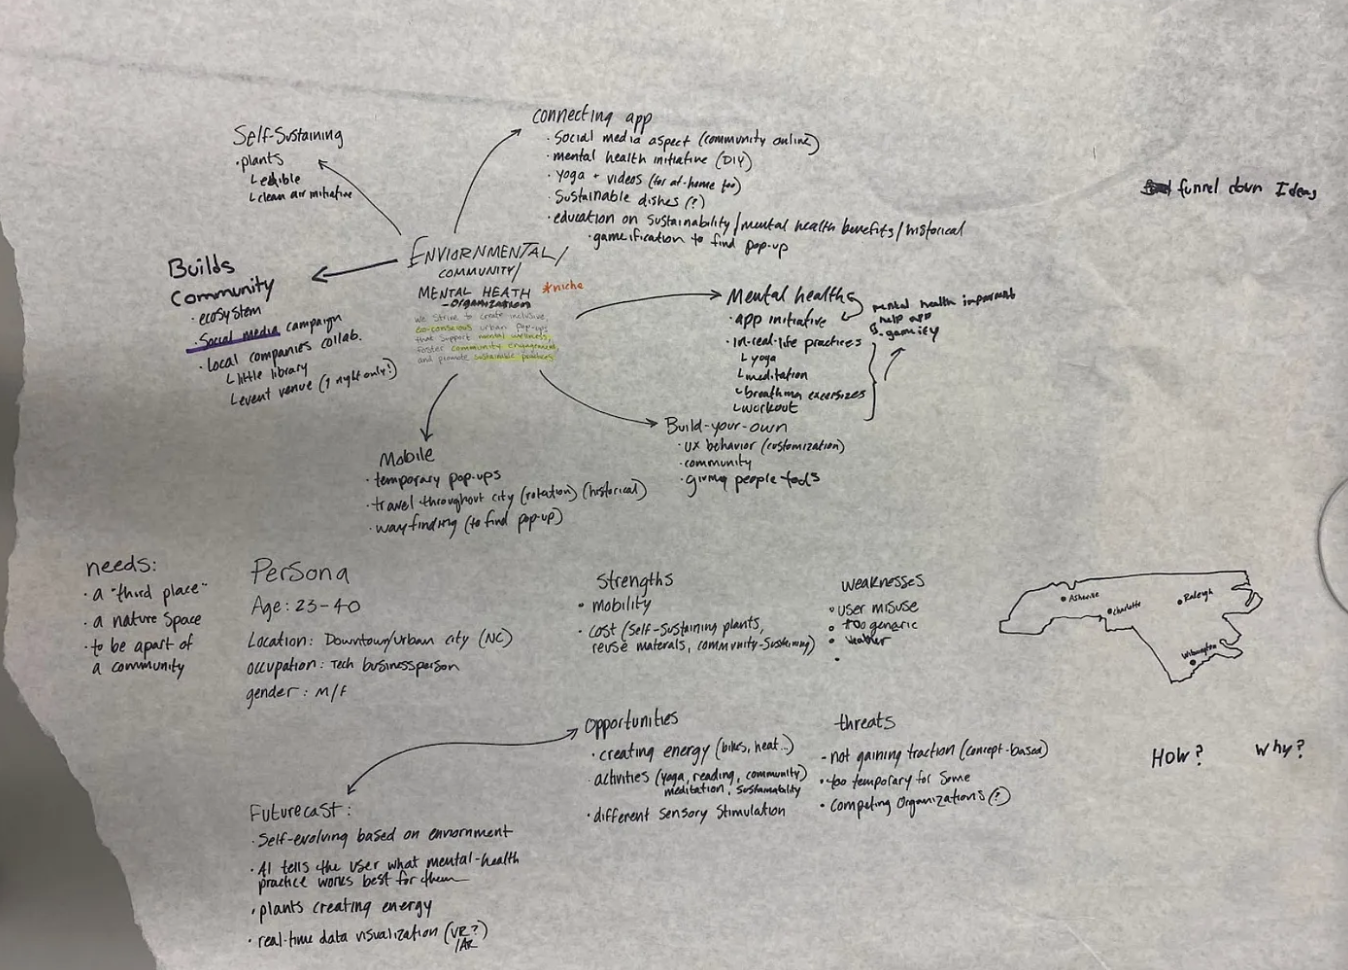 Self-Sustaining
· plants
└ edible
└ clean air initiative
connecting app
· Social media aspect (community online)
· mental health initiative (DIY)
· yoga + videos (for at-home too)
· Sustainable dishes (?)
· education on sustainability/mental health benefits/historical
· gameification to find pop-up
funnel down Ideas
Builds
Community
· ecosystem
· Social media campaign
· Local companies collab.
└ little library
└ event venue (1 night only!)
ENVIORNMENTAL/
COMMUNITY/
MENTAL HEATH *niche
-ORGANIZATION
we strive to create inclusive,
eco-conscious urban pop-ups
that support mental wellness,
foster community engagement,
and promote sustainable practices
Mental health
· app initiative
· in-real-life practices
└ yoga
└ meditation
└ breathing excersizes
└ workout
mental health
help app
· gameify
Build-your-own
· UX behavior (customization)
· community
· giving people tools
Mobile
· temporary pop-ups
· travel throughout city (rotation) (historical)
· wayfinding (to find pop-up)
needs:
· a "third place"
· a nature space
· to be apart of
a community
Persona
Age: 23-40
Location: Downtown/urban city (NC)
occupation: Tech businessperson
gender: M/F
Strengths
· mobility
· cost (self-sustaining plants,
reuse materals, community-sustaining)
weaknesses
· user misuse
· too generic
· weather
·
Asheville
Charlotte
Raleigh
Wilmington
opportunities
· creating energy (bikes, heat...)
activities (yoga, reading, community)
meditation, sustainability
· different sensory stimulation
threats
- not gaining traction (concept-based)
· too temporary for some
· Competing Organizations (?)
How? Why?
Futurecast:
· Self-evolving based on enviornment
· AI tells the user what mental-health
practice works best for them
· plants creating energy
· real-time data visualization (VR?)
/AR